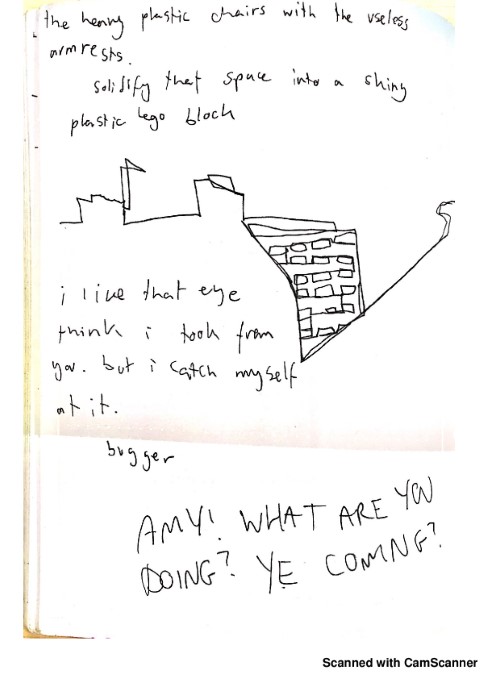 the heavy plastic chairs with the useless
armrests.
solidify that space into a shiny
plastic lego block
i like that eye
think i took from
you. but i catch myself
at it.
bugger
AMY! WHAT ARE YOU
DOING? YE COMNG?
Scanned with CamScanner